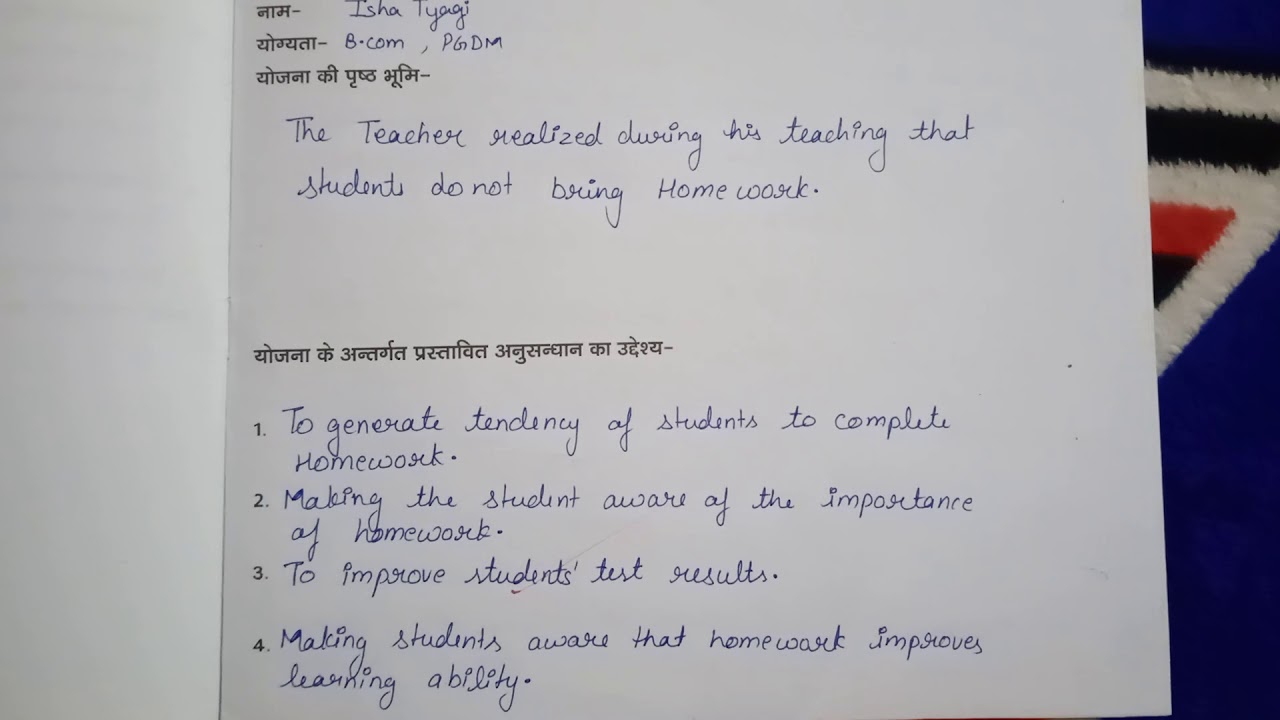 नाम- Isha Tyagi
योग्यता- B.com , PGDM
योजना की पृष्ठ भूमि-
The Teacher realized during his teaching that
students do not bring Homework.
योजना के अन्तर्गत प्रस्तावित अनुसन्धान का उद्देश्य-
1. To generate tendency of students to complete
Homework.
2. Making the student aware of the importance
of homework.
3. To improve students' test results.
4. Making students aware that homework improves
learning ability.